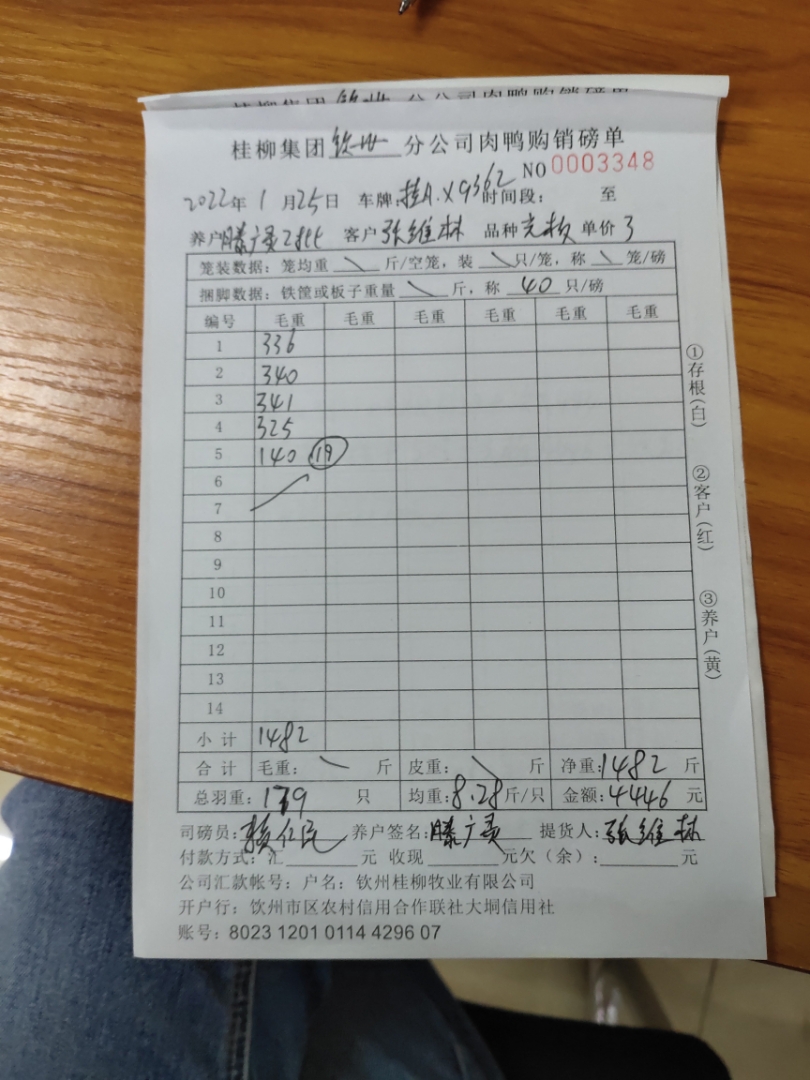 桂柳集团钦州分公司肉鸭购销磅单
NO 0003348
2022年1月25日 车牌:桂A.X9362 时间段: 至
养户 滕广贵 客户 张维林 品种 单价 3
笼装数据: 笼均重 \ 斤/空笼, 装 \ 只/笼, 称 \ 笼/磅
捆脚数据: 铁筐或板子重量 \ 斤, 称 40 只/磅
编号 毛重 毛重 毛重 毛重 毛重 毛重
1 336
2 340
3 341
4 325
5 140 19
6
7
8
9
10
11
12
13
14
小计 1482
合计 毛重: \ 斤 皮重: \ 斤 净重: 1482 斤
总羽重: 179 只 均重: 8.28 斤/只 金额: 4446 元
司磅员: 养户签名: 滕广贵 提货人: 张维林
付款方式: 汇 元 收现 元欠(余): 元
公司汇款帐号: 户名: 钦州桂柳牧业有限公司
开户行: 钦州市区农村信用合作联社大垌信用社
账号: 8023 1201 0114 4296 07
①存根(白)
②客户(红)
③养户(黄)